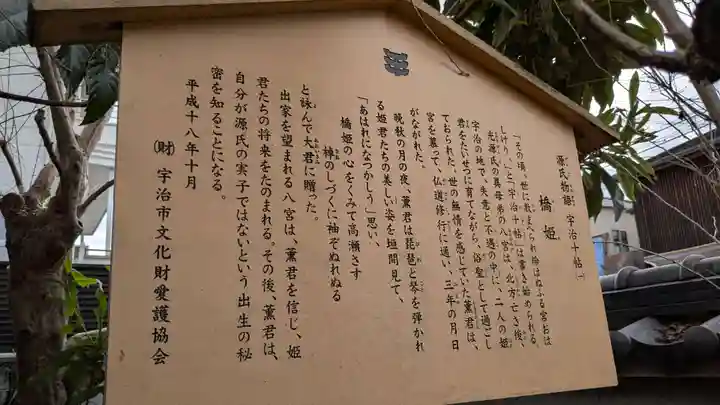 源氏物語 宇治十帖 (一)
橋姫
「その頃、世に数まへられ給はぬふる宮おは
しけり。」と「宇治十帖」は書き始められる。
光源氏の異母弟の八宮は、北方亡き後、
宇治の地で、失意と不遇の中に、二人の姫
君をたいせつに育てながら、俗聖として過ごし
ておられた。世の無情を感じていた薫君は、
宮を慕って、仏道修行に通い、三年の月日
がながれた。
晩秋の月の夜、薫君は琵琶と琴を弾かれ
る姫君たちの美しい姿を垣間見て、
「あはれになつかしう」思い、
橋姫の心をくみて高瀬さす
棹のしづくに袖ぞぬれぬる
と詠んで大君に贈った。
出家を望まれる八宮は、薫君を信じ、姫
君たちの将来をたのまれる。その後、薫君は、
自分が源氏の実子ではないという出生の秘
密を知ることになる。
平成十八年十月
(財)宇治市文化財愛護協会